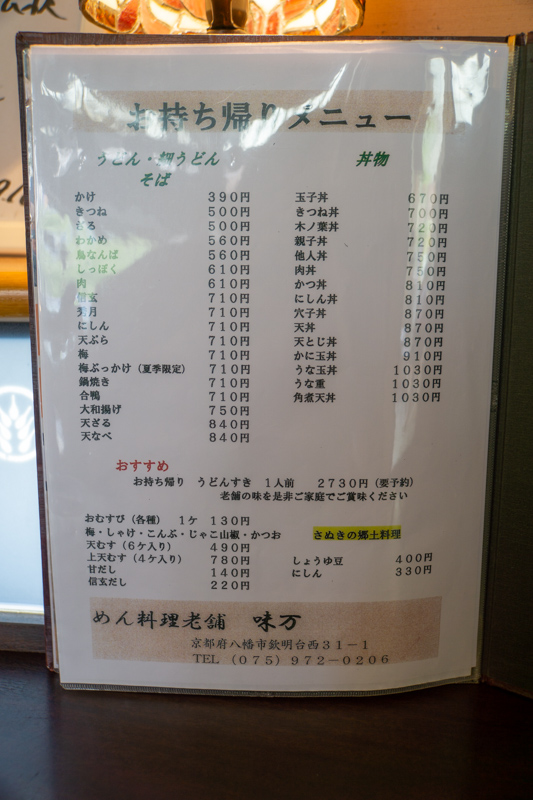 お持ち帰りメニュー
うどん・細うどん
そば
かけ 390円
きつね 500円
ざる 500円
わかめ 560円
鳥なんば 560円
しっぽく 610円
肉 610円
信玄 710円
芳月 710円
にしん 710円
天ぷら 710円
梅 710円
梅ぶっかけ（夏季限定） 710円
鍋焼き 710円
合鴨 710円
大和揚げ 750円
天ざる 840円
天なべ 840円
丼物
玉子丼 670円
きつね丼 700円
木ノ葉丼 720円
親子丼 720円
他人丼 750円
肉丼 750円
かつ丼 810円
にしん丼 810円
穴子丼 870円
天丼 870円
天とじ丼 870円
かに玉丼 910円
うな玉丼 1030円
うな重 1030円
角煮天丼 1030円
おすすめ
お持ち帰り うどんすき 1人前 2730円（要予約）
老舗の味を是非ご家庭でご賞味ください
おむすび（各種） 1ケ 130円
梅・しゃけ・こんぶ・じゃこ山椒・かつお
天むす（6ケ入り） 490円
上天むす（4ケ入り） 780円
甘だし 140円
信玄だし 220円
さぬきの郷土料理
しょうゆ豆 400円
にしん 330円
めん料理老舗 味万
京都府八幡市欽明台西31－1
TEL （075）972－0206